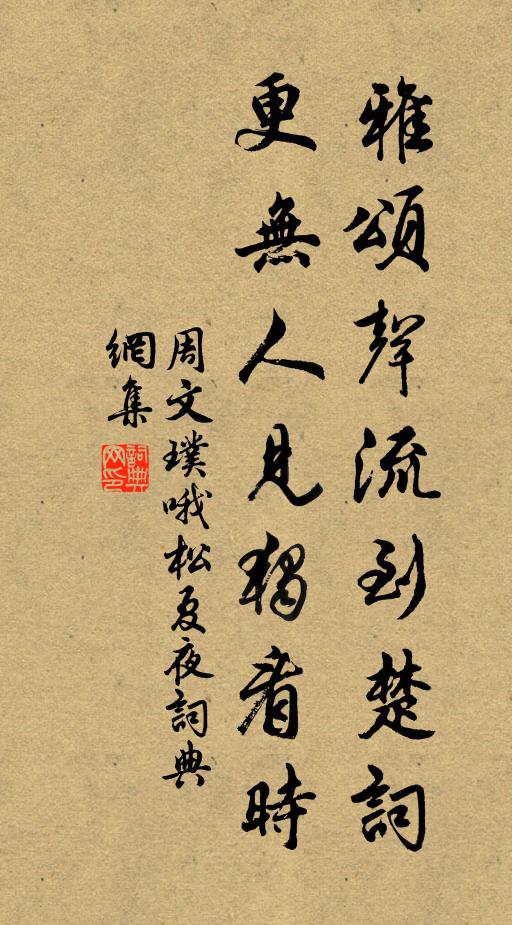 雅頌聲流到楚詞
更無人見獨看時
周文璞哦松夏夜詞典
網集
詞典
网印